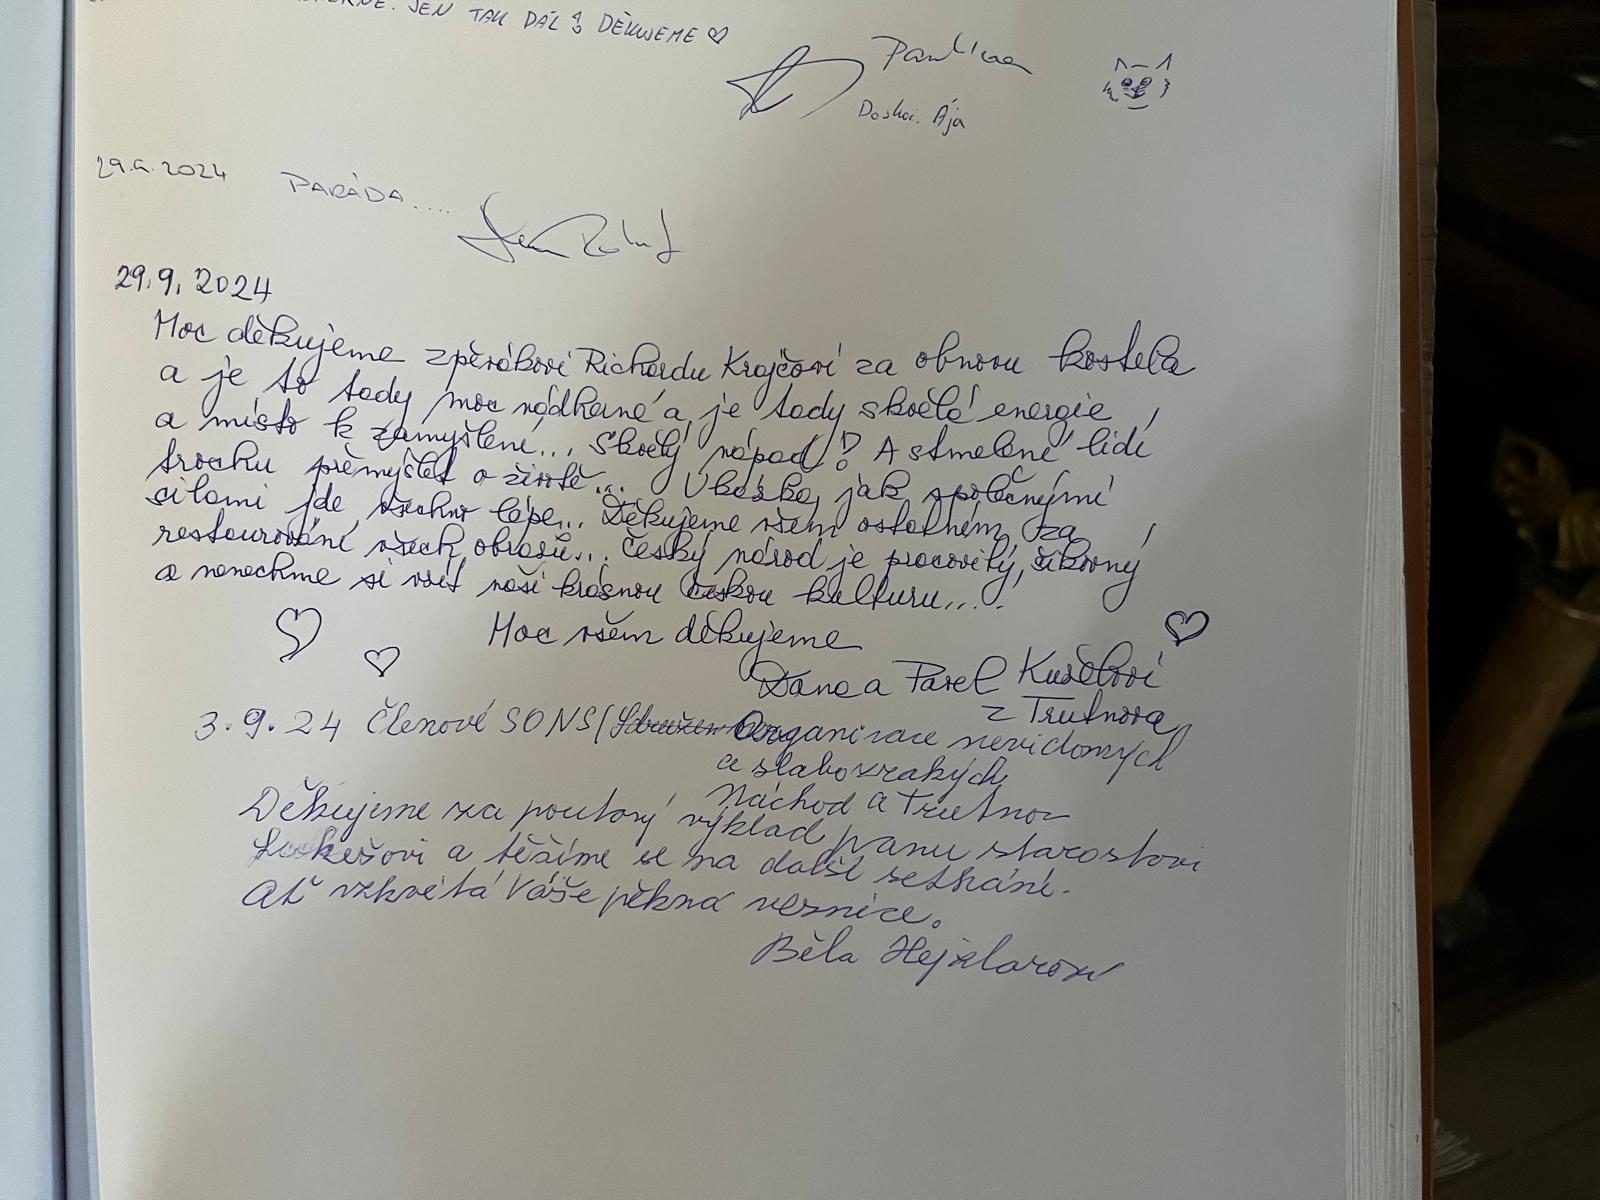 JEN TAK DÁL! DĚKUJEME
Pavlína
Ája
29.9.2024 PARÁDA....
29.9.2024
Moc děkujeme zpěvákovi Richardu Krajčovi za obnovu kostela
a je to tady moc nádherné a je tady skvělá energie
a místo k zamyšlení... Skvělý nápad! A stmelení lidí,
trochu přemýšlet o životě... Ukázka, jak společnými
silami jde všechno lépe... Děkujeme všem ostatním za
restaurování všech obrazů... Český národ je pracovitý, šikovný
a nenechme si vzít naši krásnou českou kulturu....
Moc všem děkujeme
Dana a Pavel
z Trutnova
3.9.24 Členové SONS (Organizace nevidomých
a slabozrakých
Náchod a Trutnov
Děkujeme za poutavý výklad panu starostovi
a těšíme se na další setkání.
Ať vzkvétá Vaše pěkná vesnice.
Běla Hejzlarová